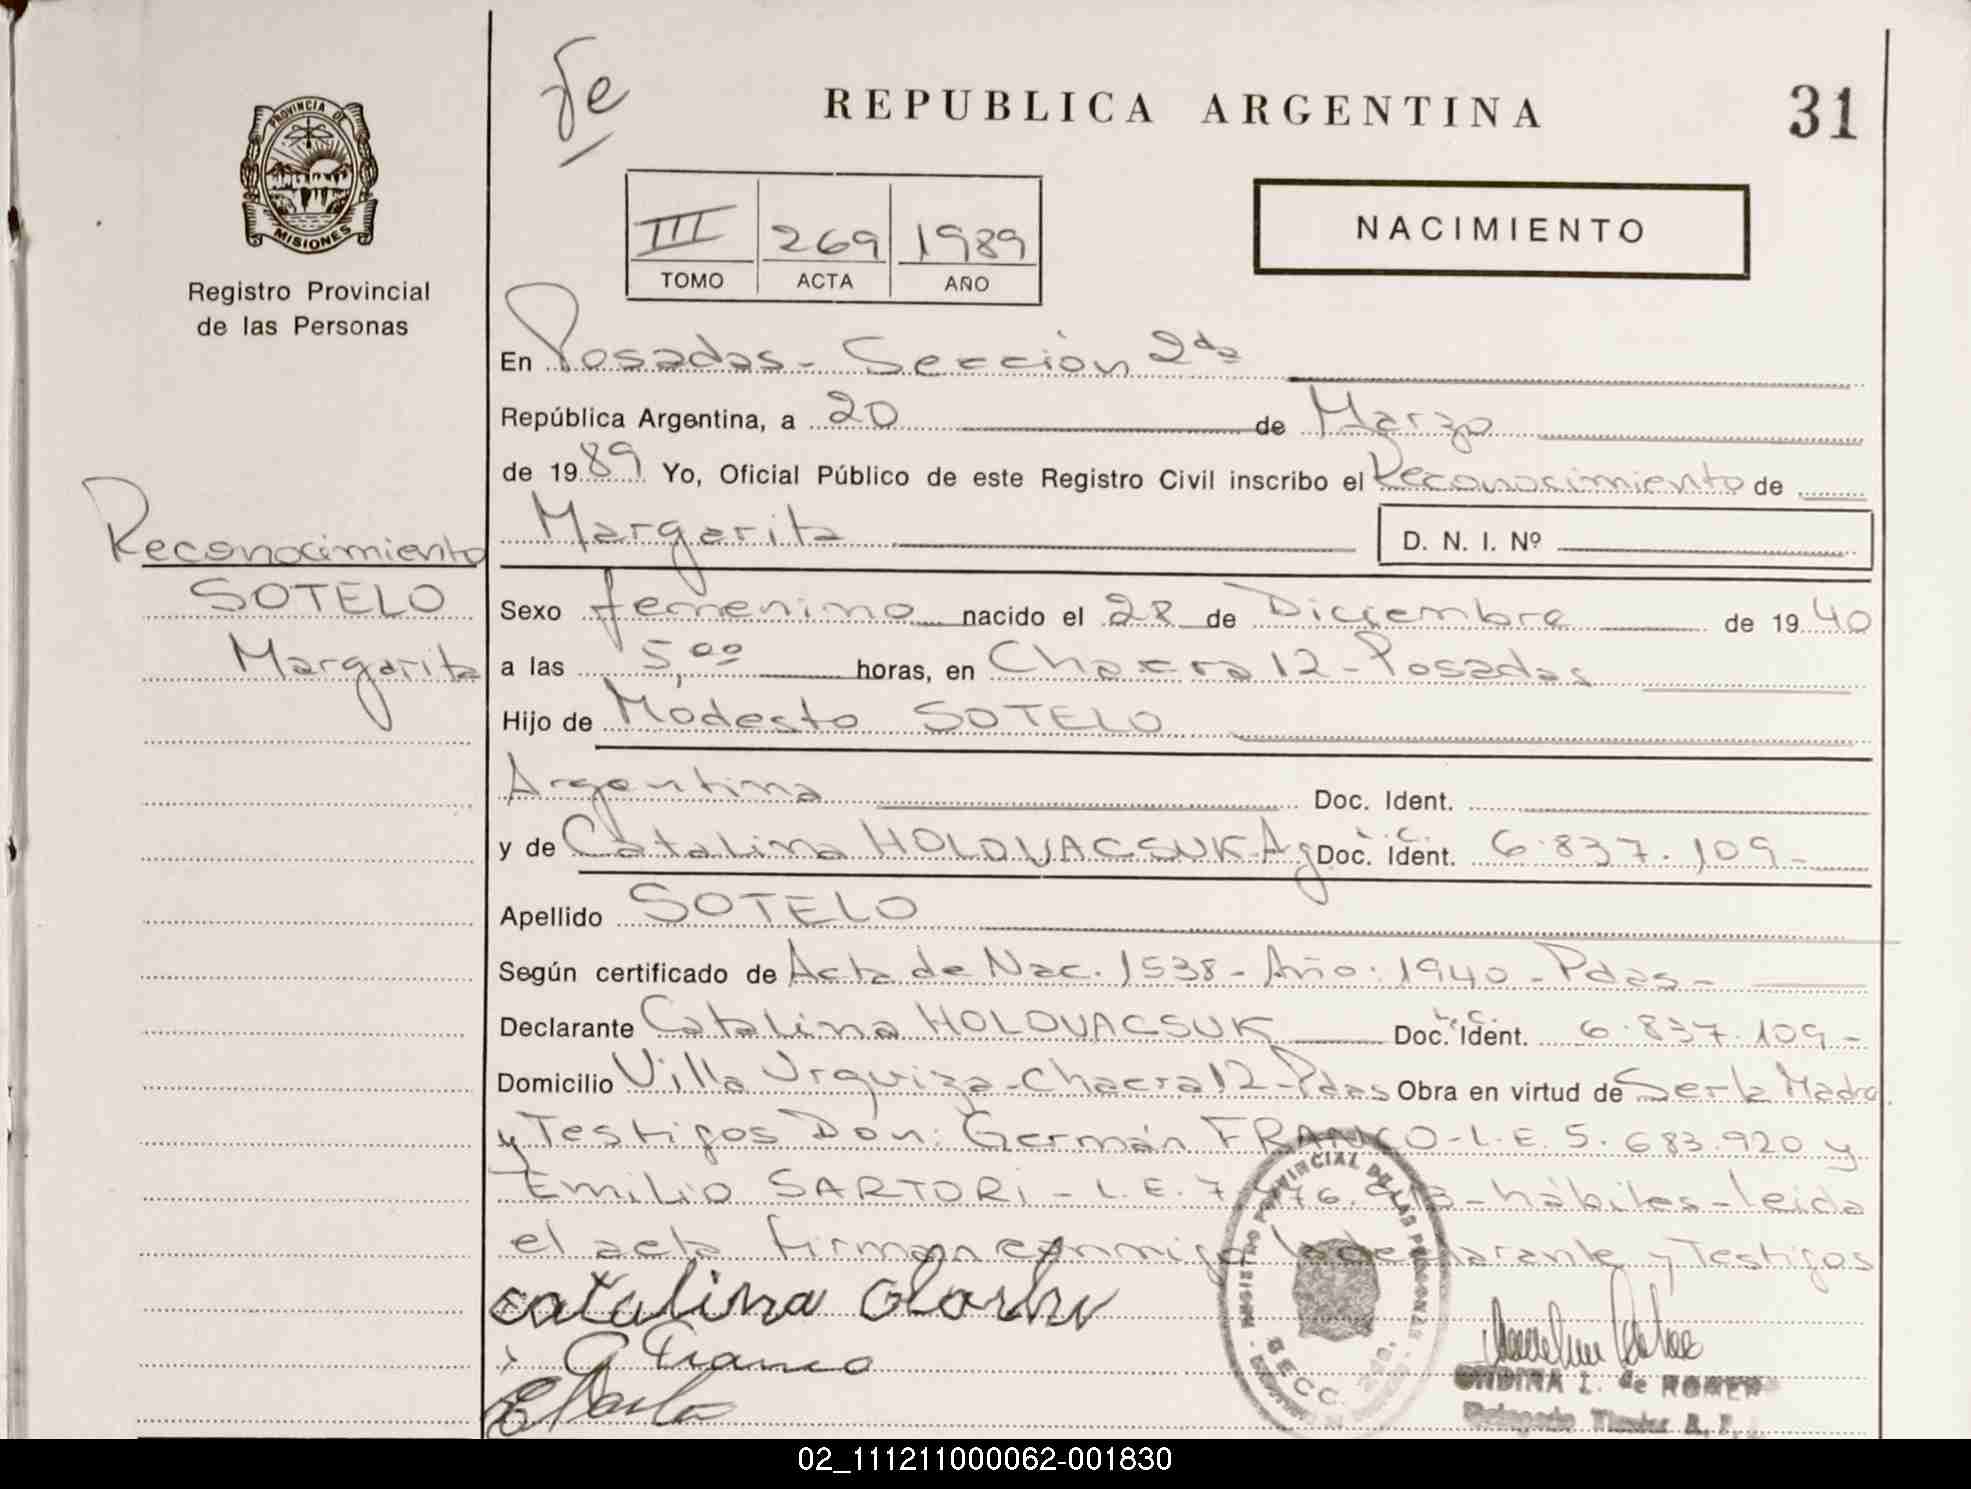 fe
REPUBLICA ARGENTINA
31
PROVINCIA DE
MISIONES
Registro Provincial
de las Personas
III 269 1989
TOMO ACTA AÑO
NACIMIENTO
En Posadas - Sección 2da
República Argentina, a 20 de Marzo
de 1989 Yo, Oficial Público de este Registro Civil inscribo el Reconocimiento de
Margarita D. N. I. Nº
Reconocimiento
SOTELO
Margarita
Sexo femenino nacido el 28 de Diciembre de 1940
a las 5,00 horas, en Chacra 12 - Posadas
Hijo de Modesto SOTELO
Argentina Doc. Ident.
y de Catalina HOLOVACSUK Ag Doc. Ident. L.C. 6.837.109-
Apellido SOTELO
Según certificado de Acta de Nac. 1538 - Año: 1940 - Pdas -
Declarante Catalina HOLOVACSUK Doc. Ident. L.C. 6.837.109-
Domicilio Villa Urquiza - Chacra 12 - Pdas Obra en virtud de Ser la Madre
y Testigos Don: Germán FRANCO - L.E. 5.683.920 y
Emilio SARTORI - L.E. 7 - hábiles - leida
el acta firman conmigo la declarante y Testigos
catalina
G Franco
REGISTRO PROVINCIAL DE LAS PERSONAS
SECC. 2da.
MISIONES
ONDINA I. de ROMERO
Delegada Titular
02_111211000062-001830